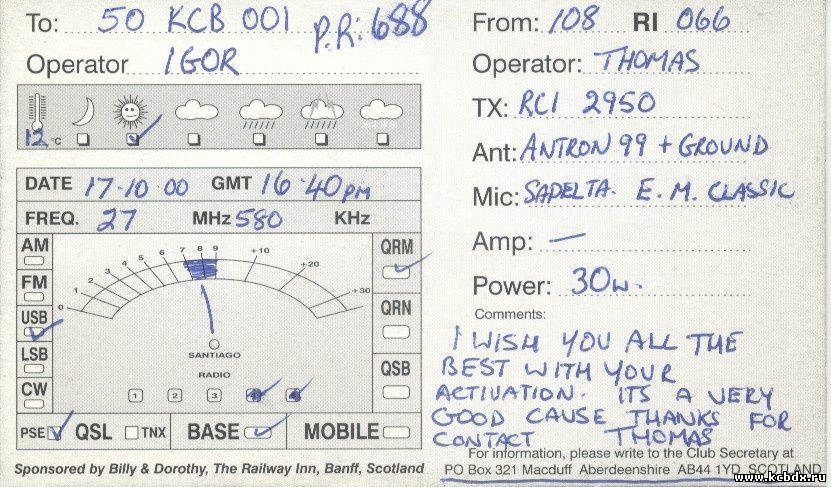 To: 50 KCB 001 P.R: 688
Operator IGOR
12 °C
DATE 17-10-00 GMT 16-40PM
FREQ. 27 MHz 580 KHz
AM
FM
USB
LSB
CW
0 1 2 3 4 5 6 7 8 9 +10 +20 +30
SANTIAGO
RADIO
1 2 3
QRM
QRN
QSB
PSE QSL TNX BASE MOBILE
Sponsored by Billy & Dorothy, The Railway Inn, Banff, Scotland
From: 108 RI 066
Operator: THOMAS
TX: RCI 2950
Ant: ANTRON 99 + GROUND
Mic: SADELTA. E. M. CLASSIC
Amp: —
Power: 30W.
Comments:
I WISH YOU ALL THE
BEST WITH YOUR
ACTIVATION. ITS A VERY
GOOD CAUSE THANKS FOR
CONTACT THOMAS
For information, please write to the Club Secretary at
PO Box 321 Macduff Aberdeenshire AB44 1YD SCOTLAND
www.kcbdx.ru